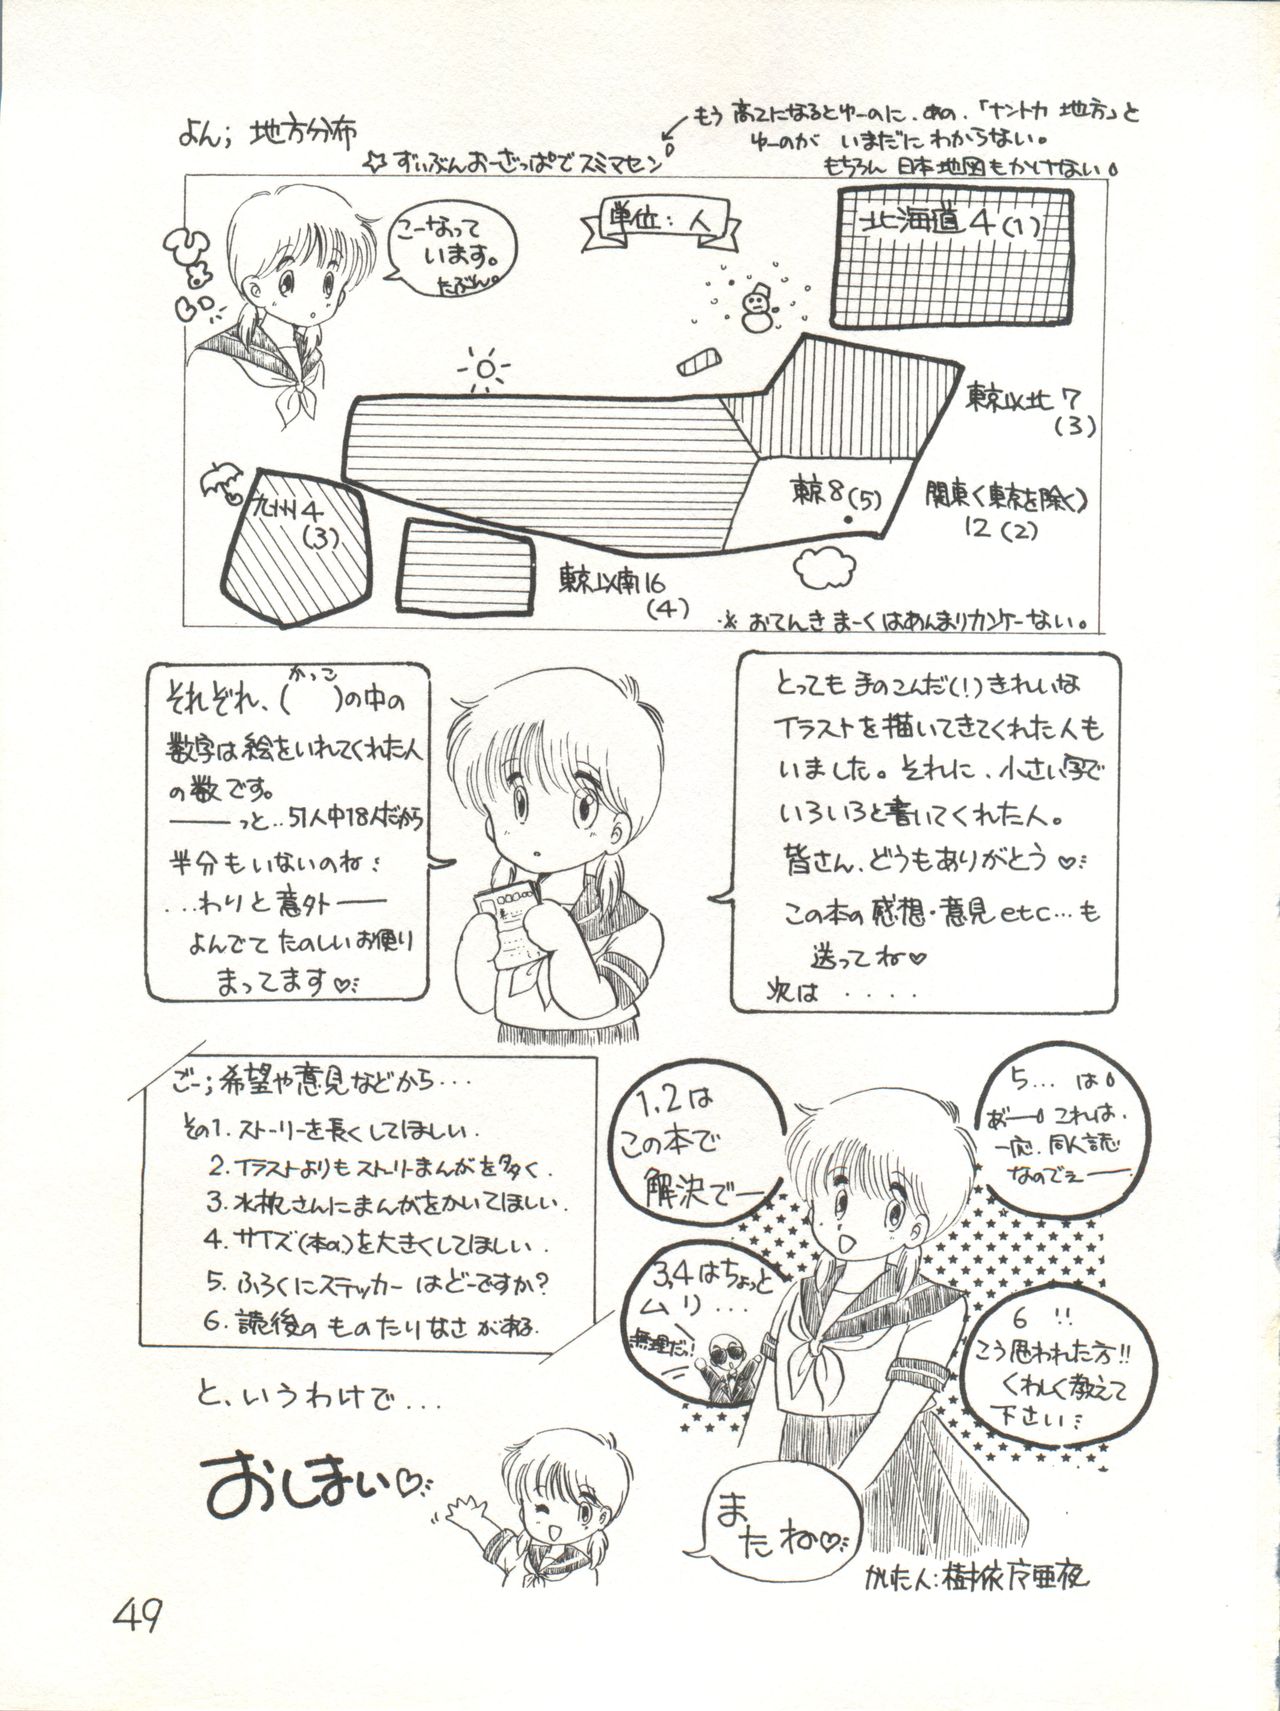 よん；地方分布
☆ずいぶんおーざっぱでスミマセン
もう高2になるとゆーのに、あの、「ナントカ地方」と
ゆーのがいまだにわからない。
もちろん日本地図もかけない
こーなって
います。
たぶん。
単位：人
北海道4(1)
東京以北7
(3)
東京8(5)
関東(東京を除く)
12(2)
九州4
(3)
東京以南16
(4)
※おてんきまーくはあんまりカンケーない。
かっこ
それぞれ、(　)の中の
数字は絵をいれてくれた人
の数です。
――っと‥51人中18人だから
半分もいないのね：
...わりと意外――
よんでて たのしいお便り
まってます♡
とっても手のこんだ(!)きれいな
イラストを描いてきてくれた人も
いました。それに、小さい字で
いろいろと書いてくれた人。
皆さん、どうもありがとう♡
この本の感想・意見etc…も
送ってね♡
次は ・・・・
ごー；希望や意見などから...
その1.ストーリーを長くしてほしい.
2.イラストよりもストーリーまんがを多く.
3.水枕さんにまんがをかいてほしい.
4.サイズ(本の)を大きくしてほしい.
5.ふろくにステッカーはどーですか?
6.読後のものたりなさがある.
1,2は
この本で
解決でー
3,4はちょっと
ムリ...
無理だっ!
5... は
あ゛ー これは、
一応、同人誌
なのでぇー
6 !!
こう思われた方!!
くわしく教えて
下さい
と、いうわけで...
おしまい♡
また
ね♡
かいた人：樹依亜夜
49